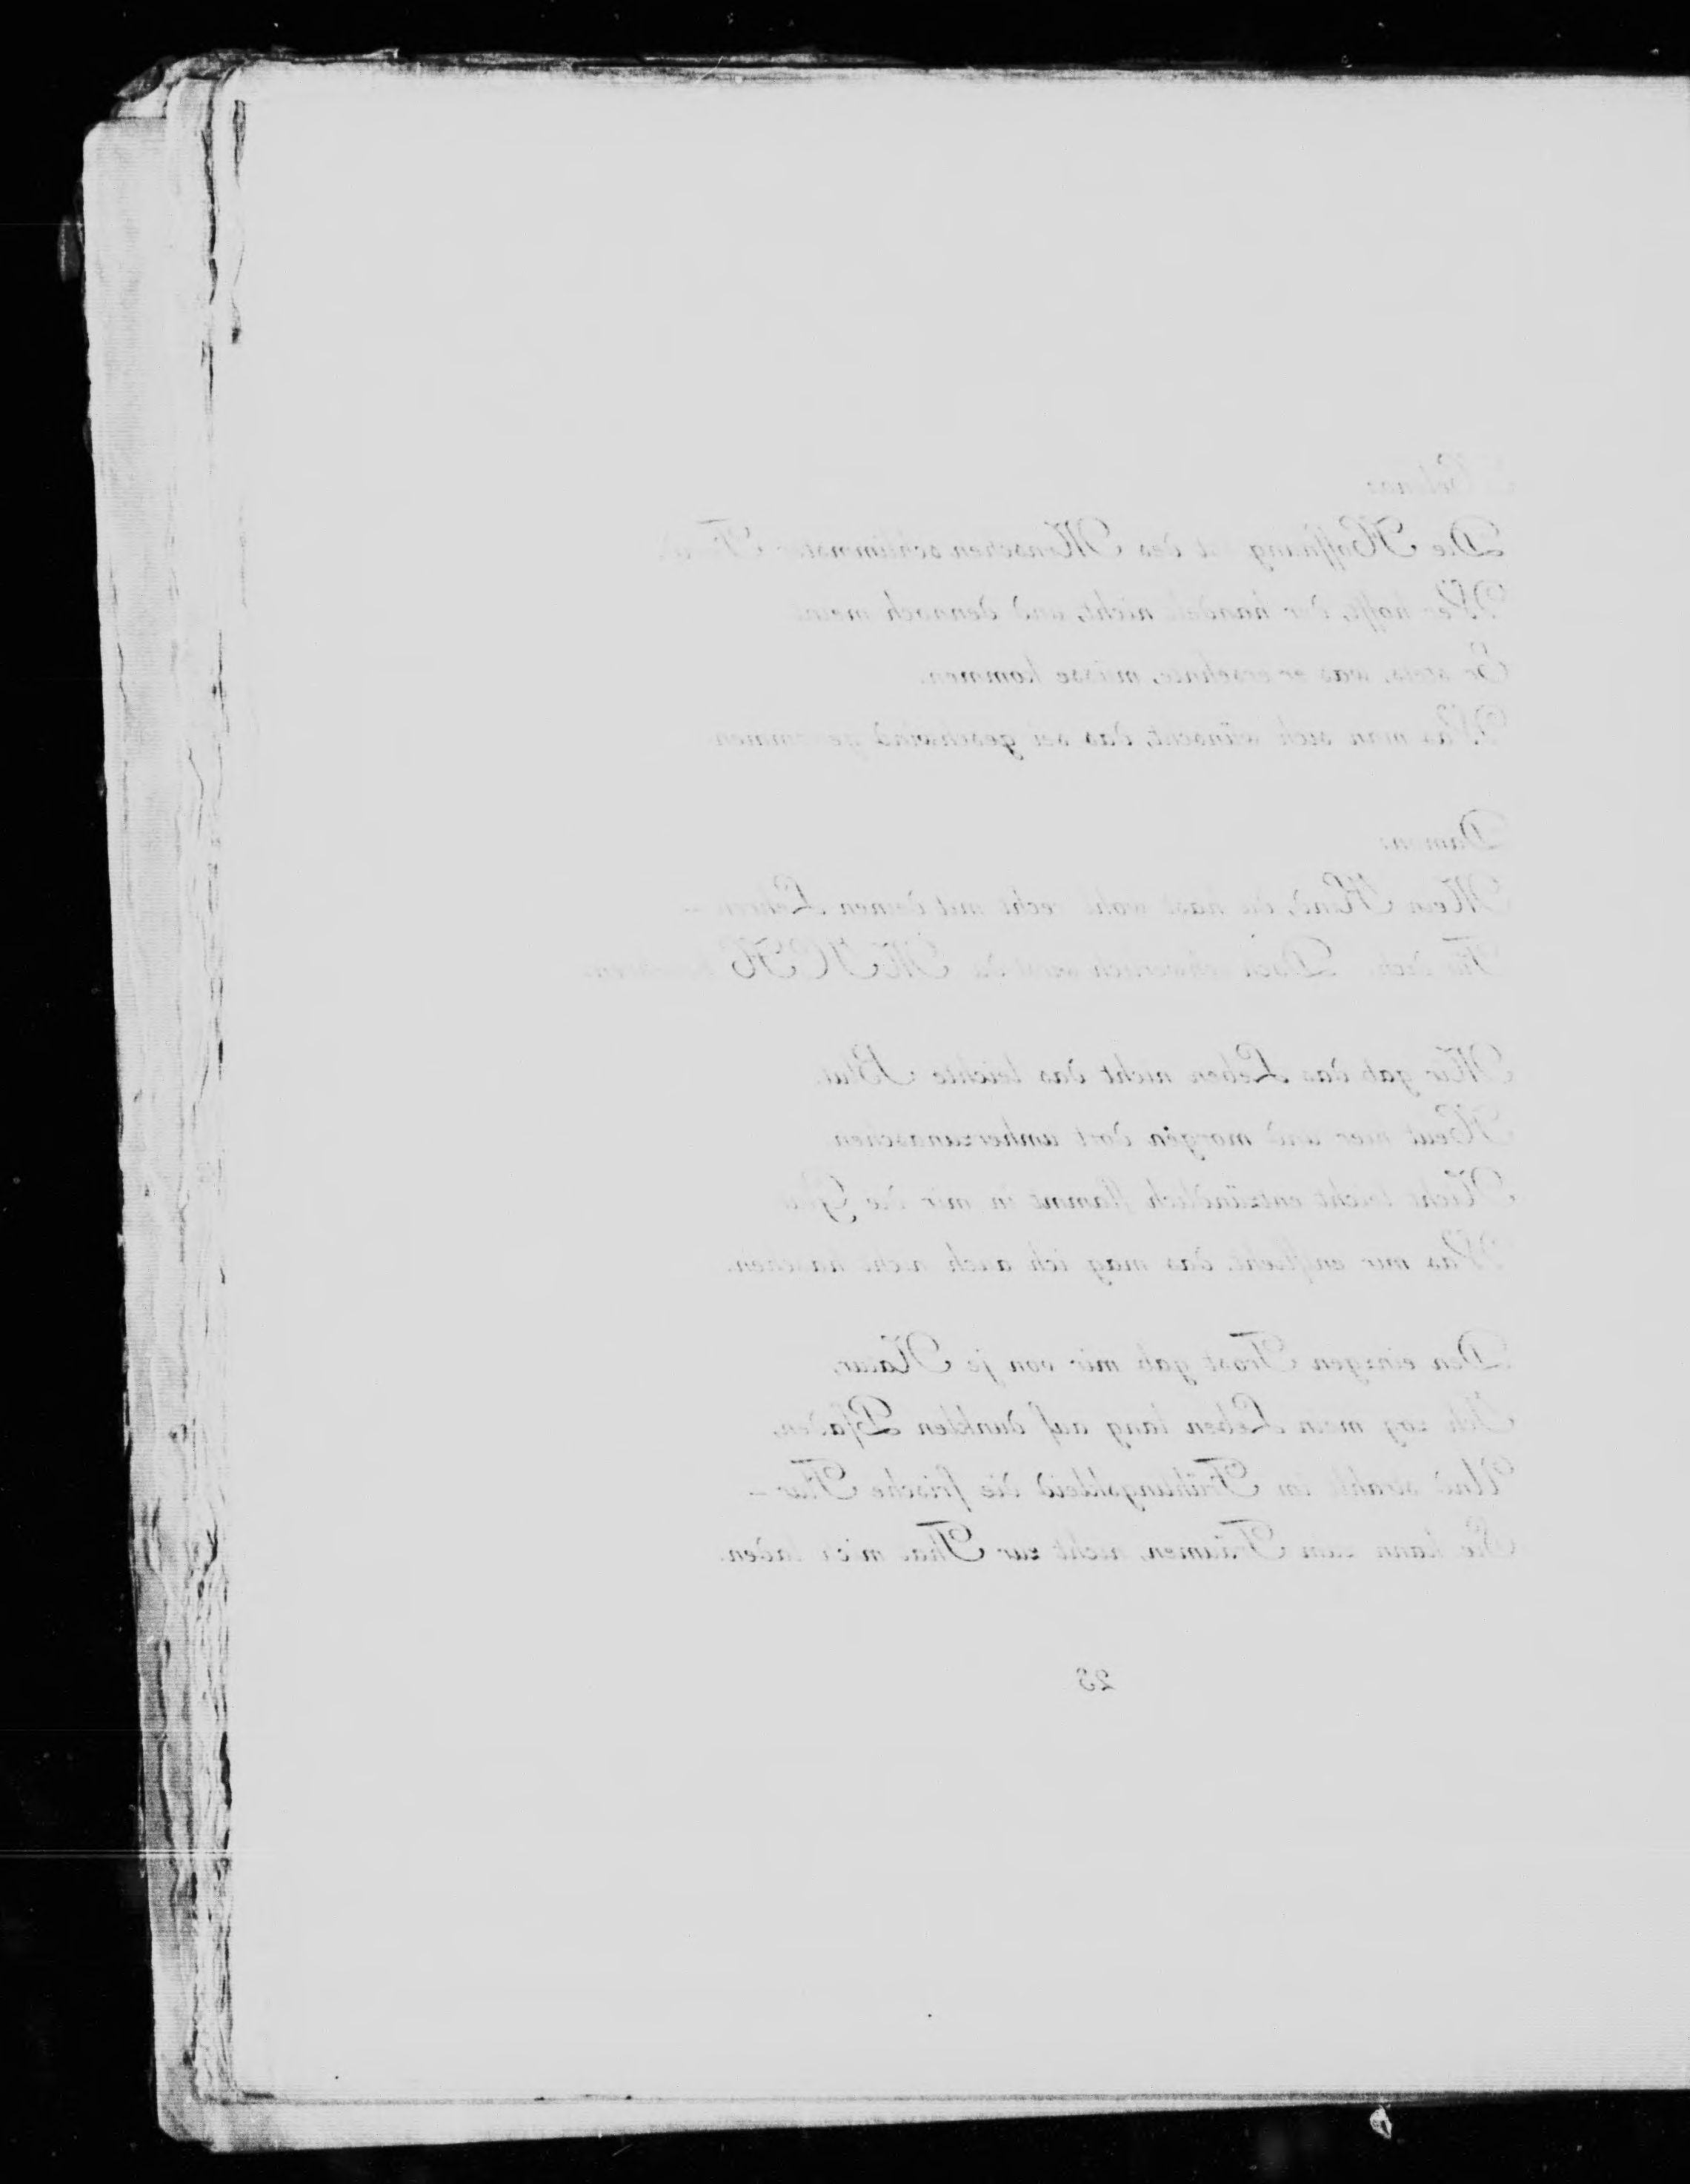 Die Hoffnung ist des Menschen schlimmster
Wer hofft, der handelt nicht, und dennoch meint
Er stets, was er ersehnte, müsse kommen.
Was man sich wünscht, das sei geschwind genommen.
Damon:
Mein Kind, du hast wohl recht mit deinen Lehren —
Für dich. Doch schwerlich wirst du MICH
Mir gab das Leben nicht das leichte Blut,
Heut hier und morgen dort umherzunaschen
Nicht leicht entzündlich flammt in mir die Glut
Was mir entflieht, das mag ich auch nicht haschen.
Den einzgen Trost gab mir von je Natur,
Ich zog mein Leben lang auf dunklen Pfaden,
Und strahlt im Frühlingskleid die frische Flur —
Sie kann zum Träumen, nicht zur That mich laden.
23